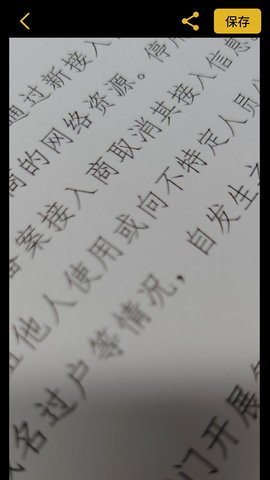 保存
通过新接入
的网络资源。停
备案接入商取消其接入信息。
他人使用或向不特定人员
名过户等情况，自发生之
门开展